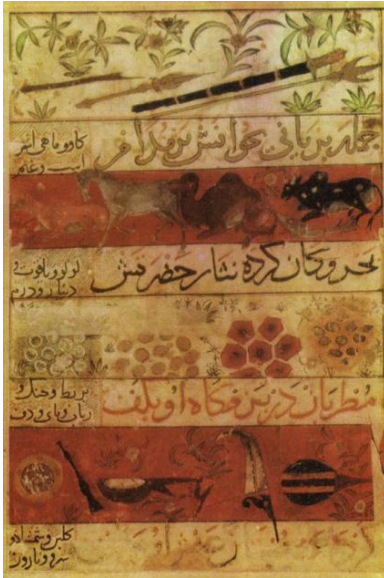 جمله بریانی بخوانش بر مدام
کاو و ماهی اشتر
اسب و غنم
بحر و کان کرده نثار حضرتش
لولو و یاقوت و
دینار و درم
مطربان در بزمکاه او بکف
بربط و چنک و
رباب و نای و دف
کلبن و شمشاد و
سرو و نارون